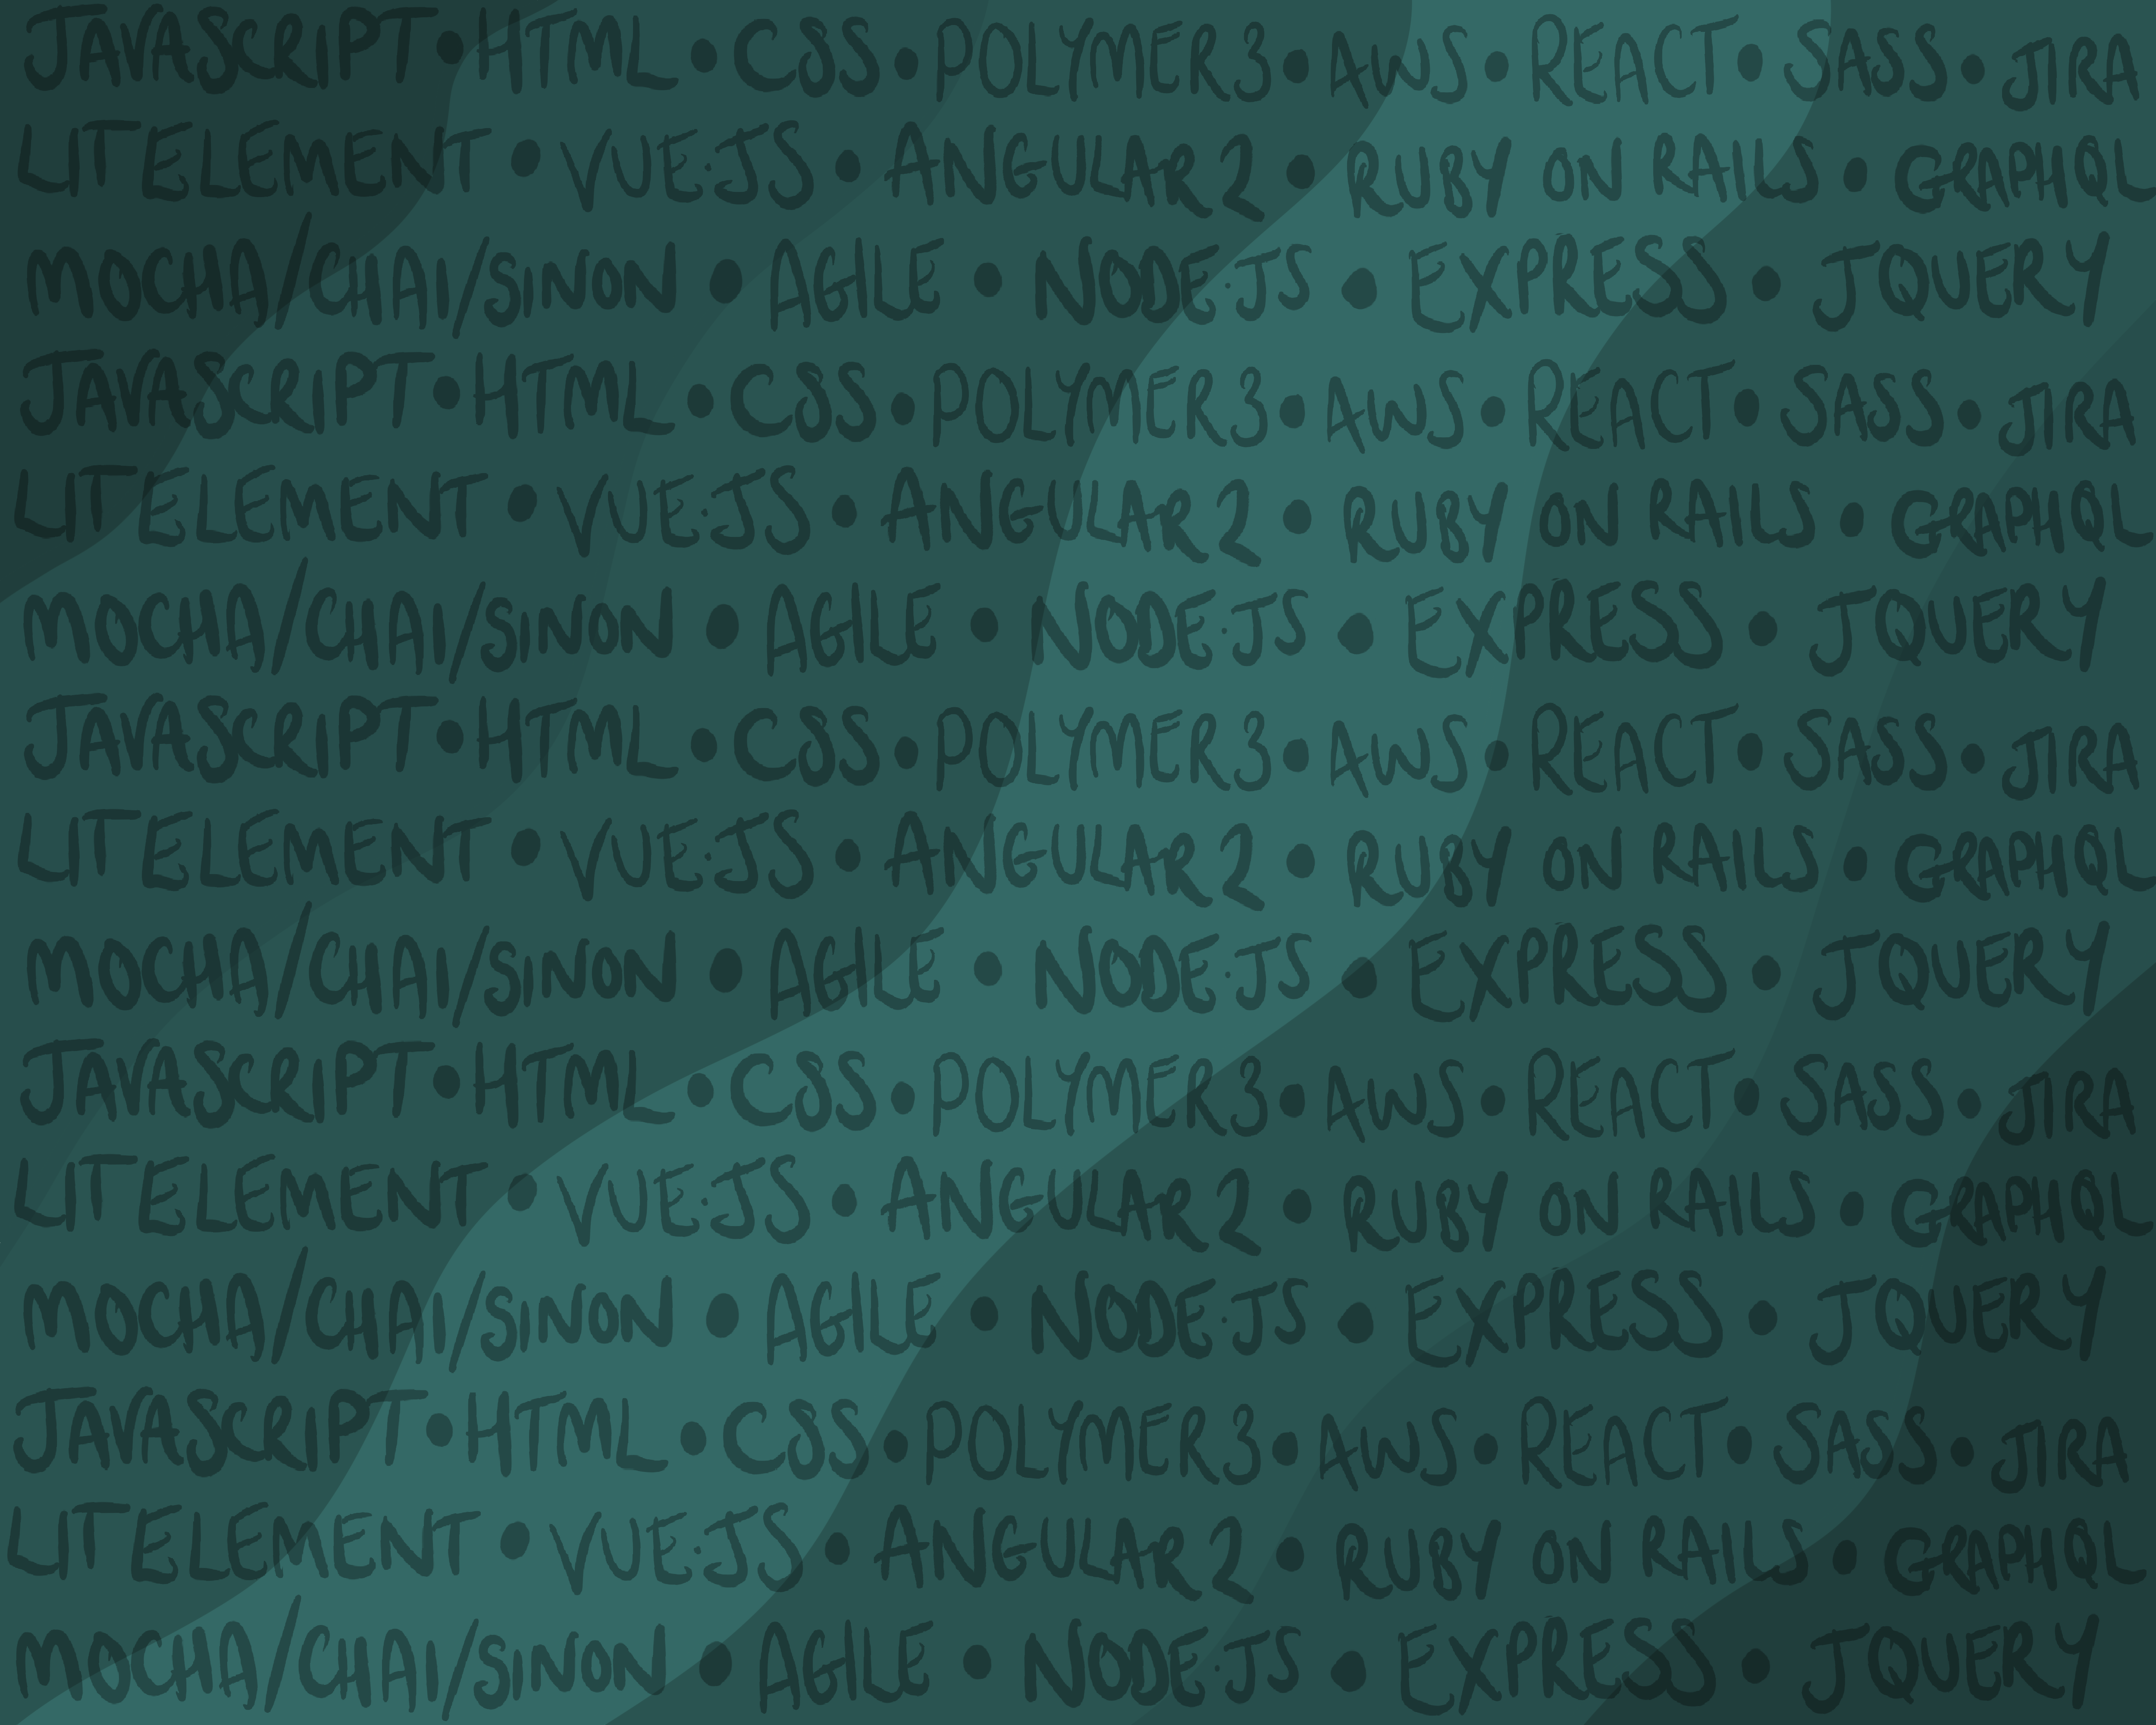 JAVASCRIPT • HTML • CSS • POLYMER 3 • AWS • REACT • SASS • JIRA
LITELEMENT • VUE.JS • ANGULAR 2 • RUBY ON RAILS • GRAPHQL
MOCHA/CHAI/SINON • AGILE • NODE.JS • EXPRESS • JQUERY
JAVASCRIPT • HTML • CSS • POLYMER 3 • AWS • REACT • SASS • JIRA
LITELEMENT • VUE.JS • ANGULAR 2 • RUBY ON RAILS • GRAPHQL
MOCHA/CHAI/SINON • AGILE • NODE.JS • EXPRESS • JQUERY
JAVASCRIPT • HTML • CSS • POLYMER 3 • AWS • REACT • SASS • JIRA
LITELEMENT • VUE.JS • ANGULAR 2 • RUBY ON RAILS • GRAPHQL
MOCHA/CHAI/SINON • AGILE • NODE.JS • EXPRESS • JQUERY
JAVASCRIPT • HTML • CSS • POLYMER 3 • AWS • REACT • SASS • JIRA
LITELEMENT • VUE.JS • ANGULAR 2 • RUBY ON RAILS • GRAPHQL
MOCHA/CHAI/SINON • AGILE • NODE.JS • EXPRESS • JQUERY
JAVASCRIPT • HTML • CSS • POLYMER 3 • AWS • REACT • SASS • JIRA
LITELEMENT • VUE.JS • ANGULAR 2 • RUBY ON RAILS • GRAPHQL
MOCHA/CHAI/SINON • AGILE • NODE.JS • EXPRESS • JQUERY